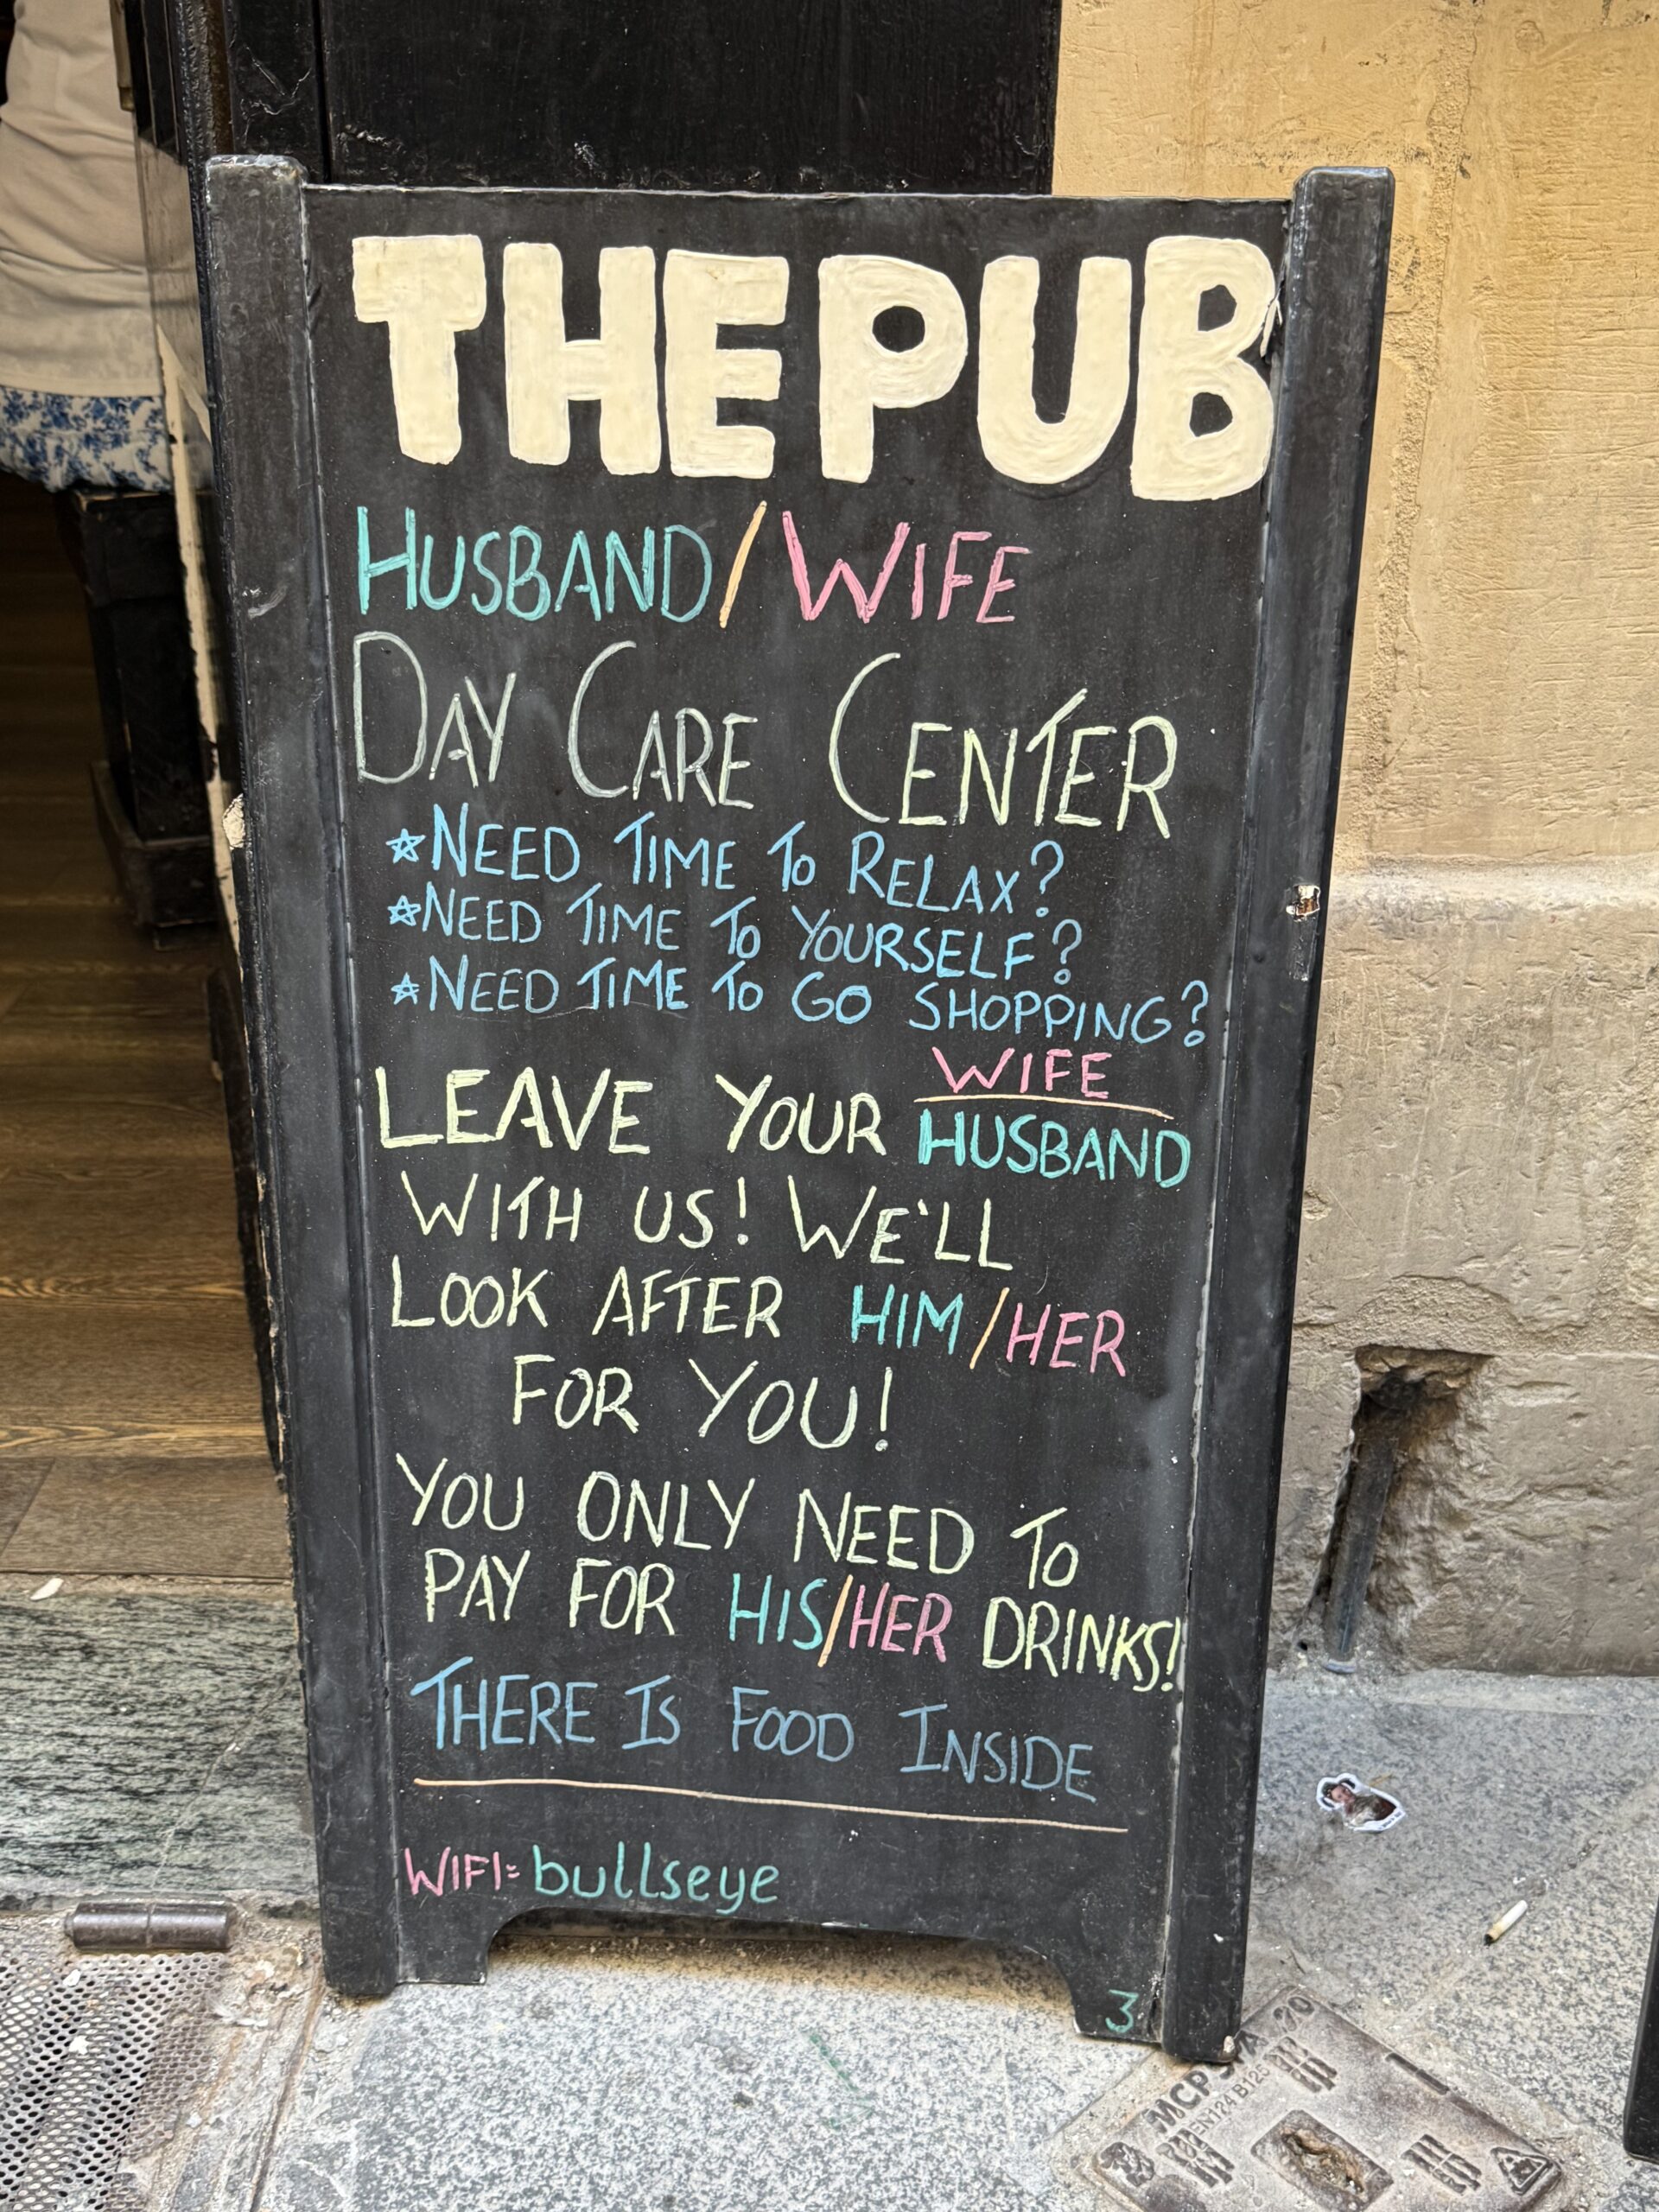 THE PUB
HUSBAND/WIFE
DAY CARE CENTER
*NEED TIME TO RELAX?
*NEED TIME TO YOURSELF?
*NEED TIME TO GO SHOPPING?
WIFE
LEAVE YOUR HUSBAND
WITH US! WE'LL
LOOK AFTER HIM/HER
FOR YOU!
YOU ONLY NEED TO
PAY FOR HIS/HER DRINKS!
THERE IS FOOD INSIDE
WIFI: bullseye
3